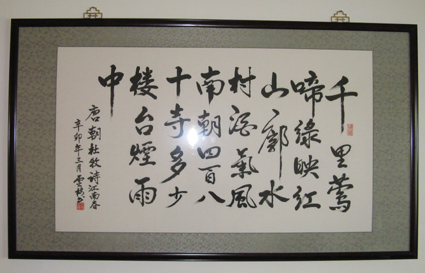 千里莺
啼緑映红
山廓水
村酒氣風
南朝四百八
十寺多少
楼台煙雨
中
唐朝杜牧诗江南春
辛卯年三月